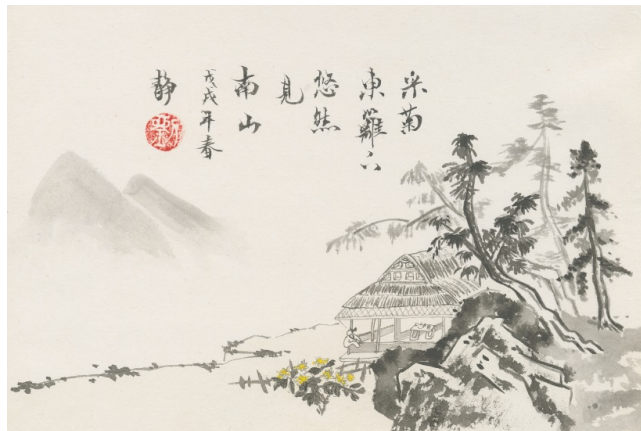 采菊
東籬下
悠然
見
南山
戊戌年春
靜